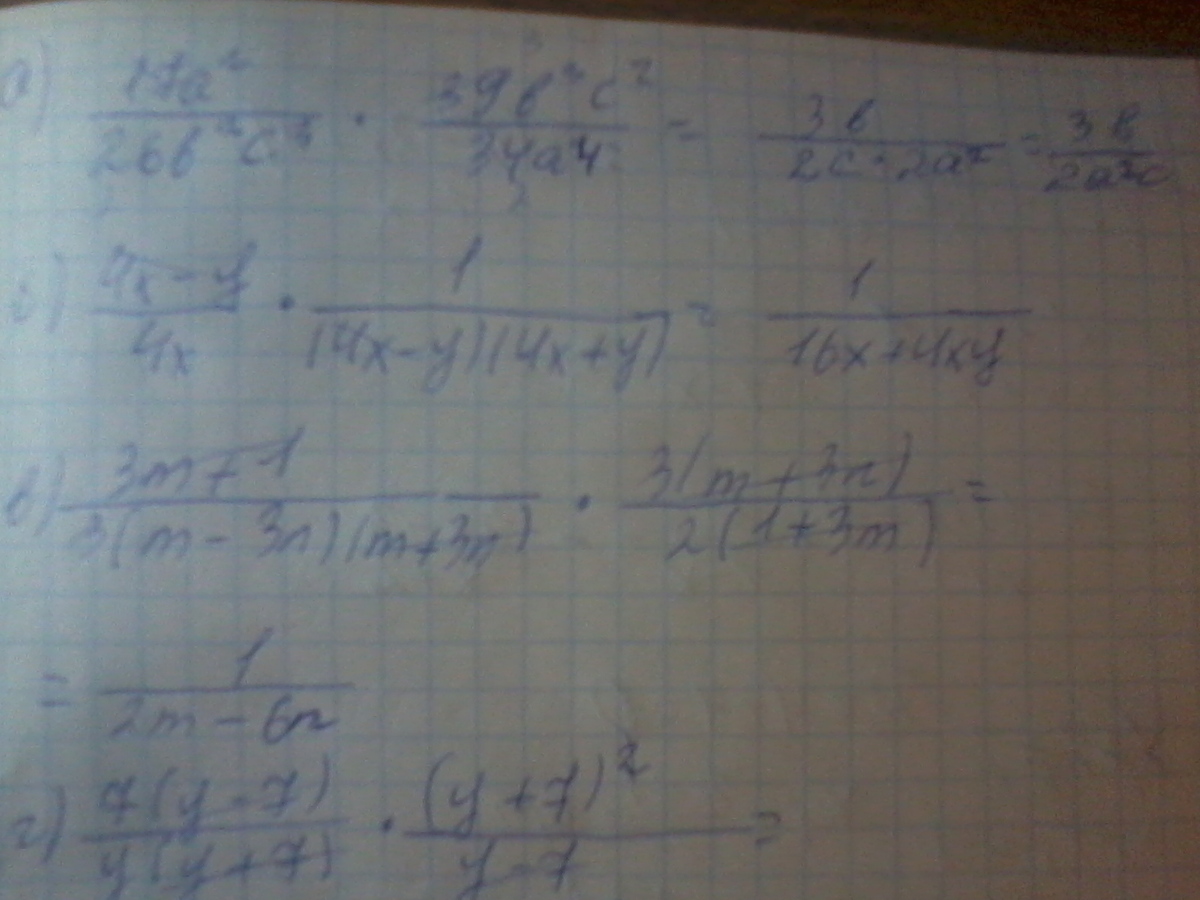 а) 17a²/26b²c³ · 39b³c²/34a⁴ = 3b/2c·2a² = 3b/2a²c
б) 4x-y/4x · 1/(4x-y)(4x+y) = 1/16x+4xy
в) 3m+1/3(m-3n)(m+3n) · 3(m+3n)/2(1+3m) =
= 1/2m-6n
г) 7(y-7)/y(y+7) · (y+7)²/y-7 =